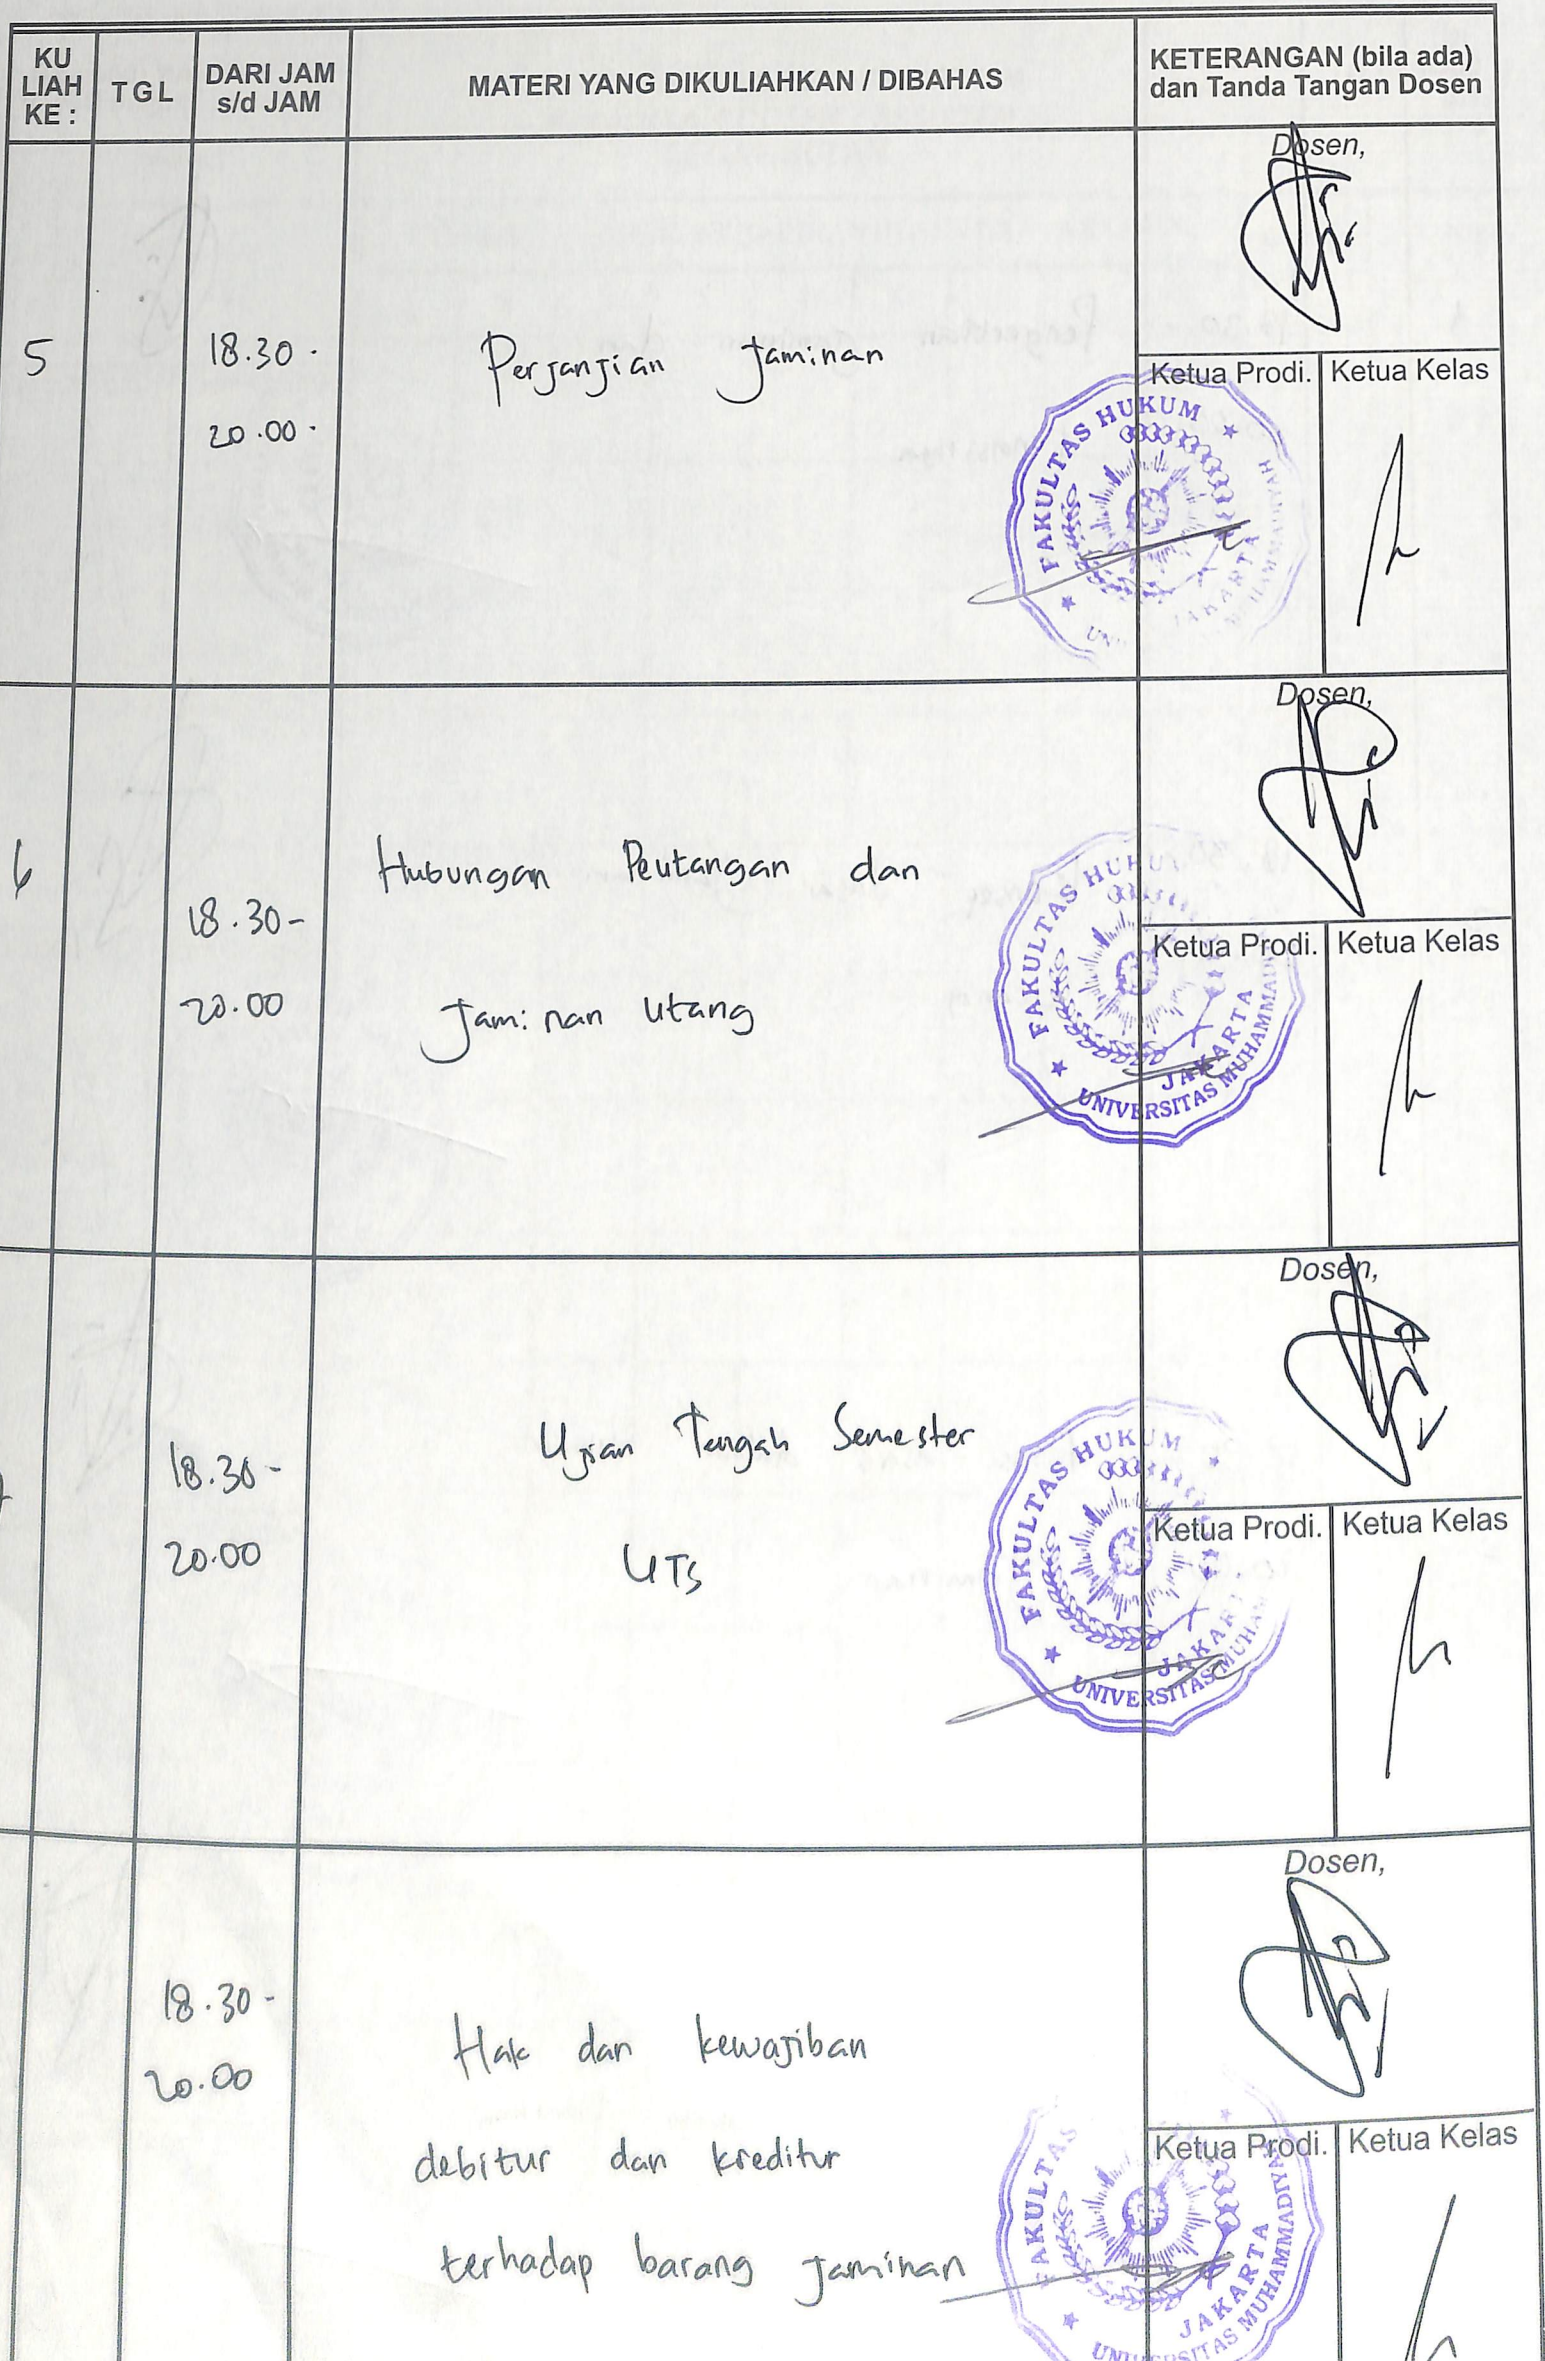 KU LIAH KE :
TGL
DARI JAM
s/d JAM
MATERI YANG DIKULIAHKAN / DIBAHAS
KETERANGAN (bila ada)
dan Tanda Tangan Dosen
Dosen,
5
18.30 -
20.00 -
Perjanjian Jaminan
Ketua Prodi.
Ketua Kelas
FAKULTAS HUKUM
JAKARTA
Dosen,
6
18.30 -
20.00
Hubungan Peutangan dan
Jaminan Utang
Ketua Prodi.
Ketua Kelas
FAKULTAS HUKU
JAKARTA
UNIVERSITAS MUHAMMADI
Dosen,
18.30 -
20.00
Ujian Tengah Semester
UTS
Ketua Prodi.
Ketua Kelas
FAKULTAS HUKUM
JAKART
UNIVERSITAS MUHAM
Dosen,
18.30 -
20.00
Hak dan kewajiban
debitur dan kreditur
terhadap barang jaminan
Ketua Prodi.
Ketua Kelas
FAKULTAS
JAKARTA
UNIVERSITAS MUHAMMADIYA